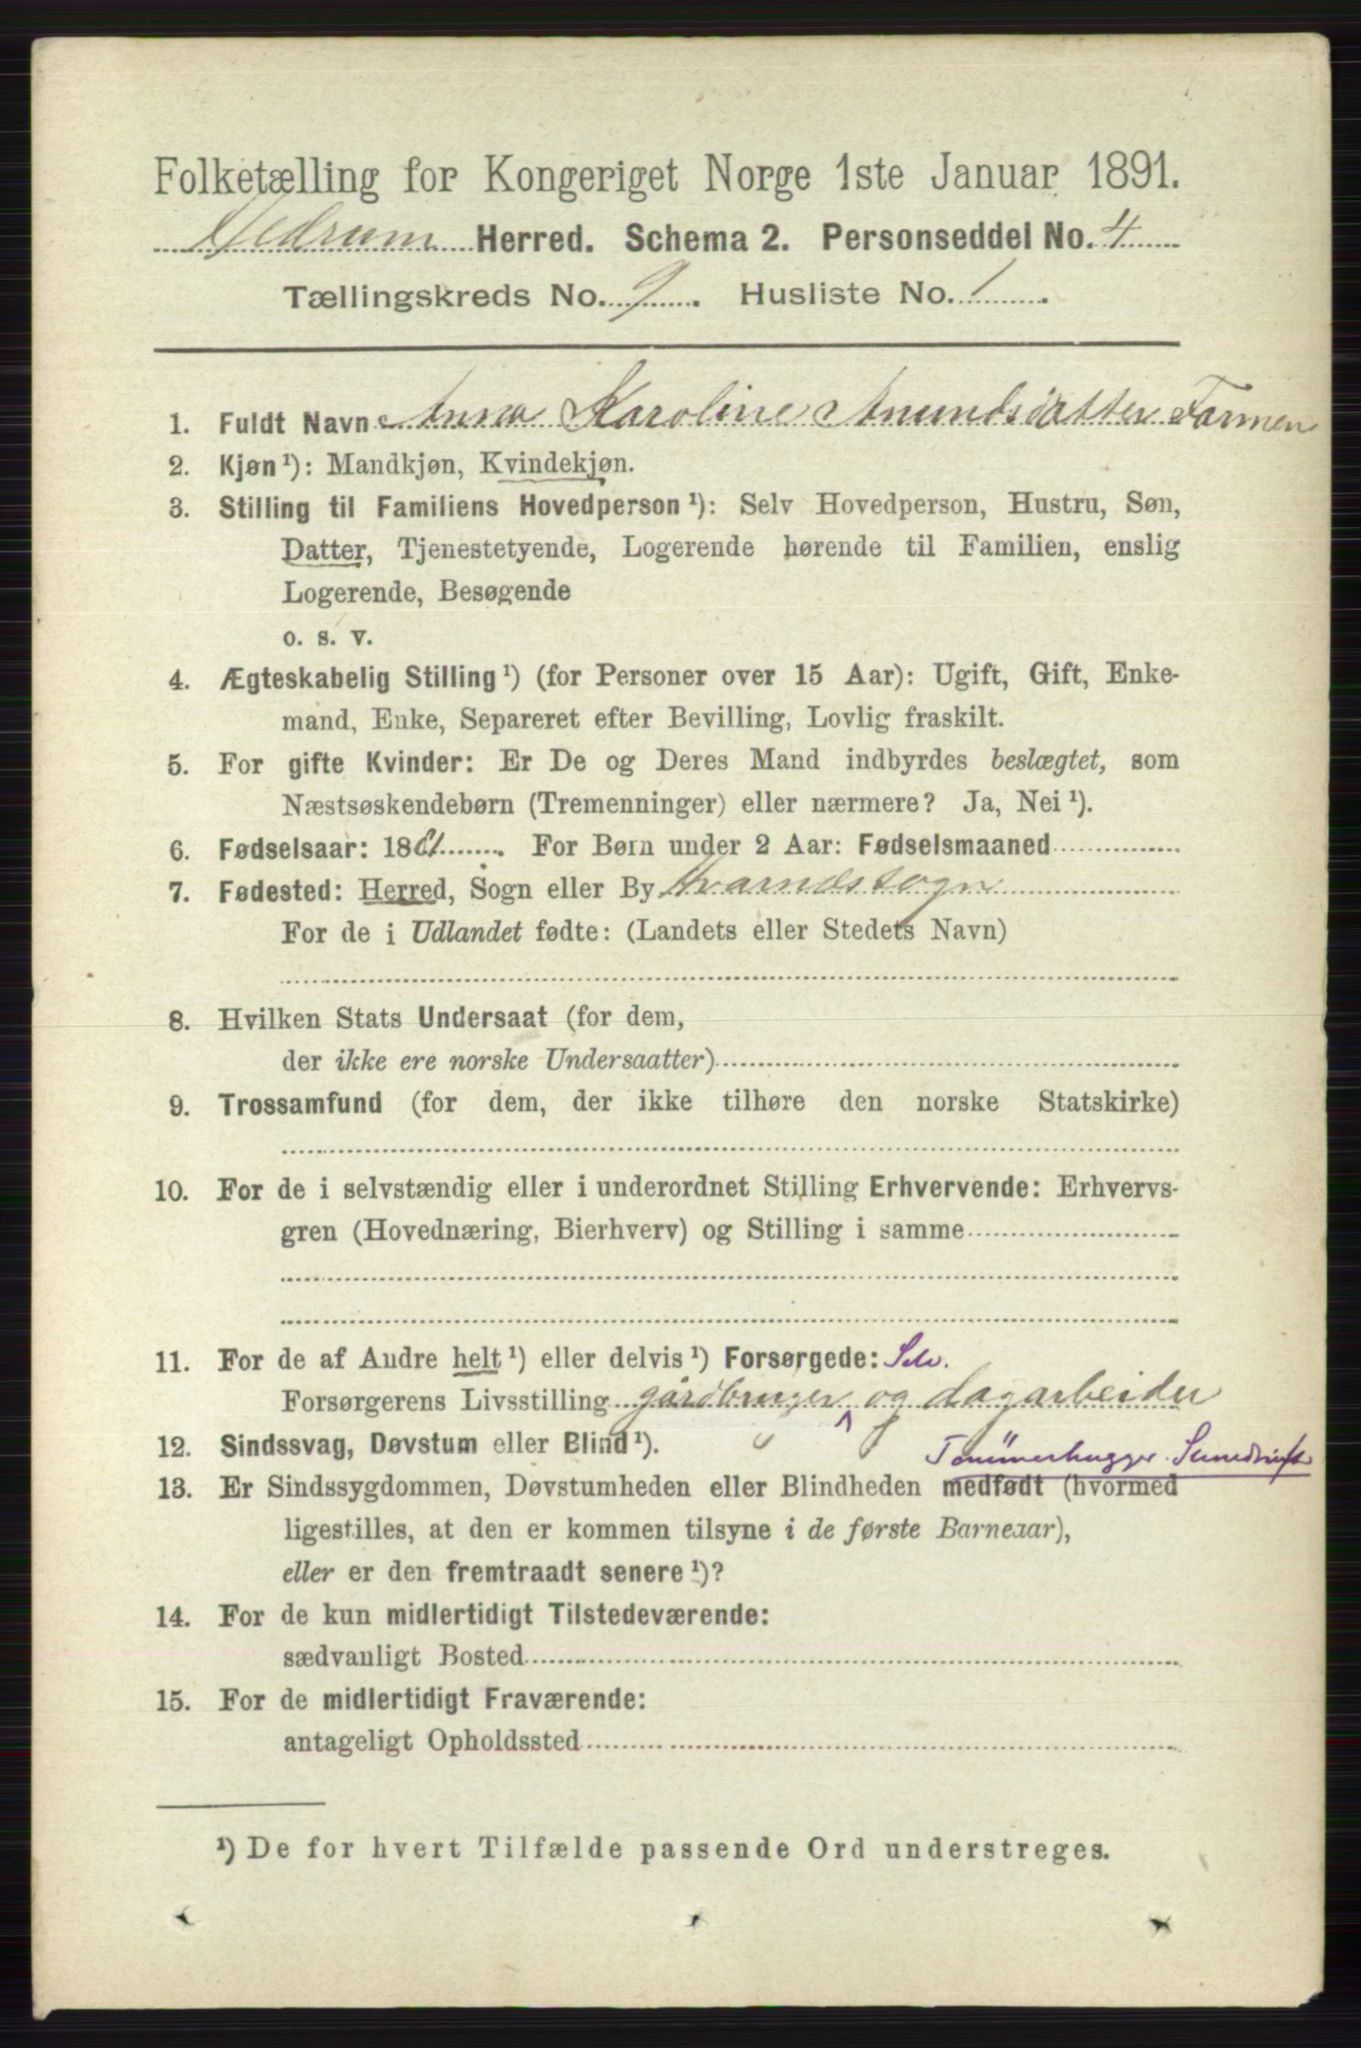 Folketælling for Kongeriget Norge 1ste Januar 1891.
Hedrum Herred. Schema 2. Personseddel No. 4
Tællingskreds No. 9. Husliste No. 1.
1. Fuldt Navn Anna Karoline Anundsdatter Farmen
2. Kjøn¹): Mandkjøn, Kvindekjøn.
3. Stilling til Familiens Hovedperson¹): Selv Hovedperson, Hustru, Søn,
Datter, Tjenestetyende, Logerende hørende til Familien, enslig
Logerende, Besøgende
o. s. v.
4. Ægteskabelig Stilling¹) (for Personer over 15 Aar): Ugift, Gift, Enke-
mand, Enke, Separeret efter Bevilling, Lovlig fraskilt.
5. For gifte Kvinder: Er De og Deres Mand indbyrdes beslægtet, som
Næstsøskendebørn (Tremenninger) eller nærmere? Ja, Nei¹).
6. Fødselsaar: 1881. For Børn under 2 Aar: Fødselsmaaned
7. Fødested: Herred, Sogn eller By Hvarnes sogn
For de i Udlandet fødte: (Landets eller Stedets Navn)
8. Hvilken Stats Undersaat (for dem,
der ikke ere norske Undersaatter)
9. Trossamfund (for dem, der ikke tilhøre den norske Statskirke)
10. For de i selvstændig eller i underordnet Stilling Erhvervende: Erhvervs-
gren (Hovednæring, Bierhverv) og Stilling i samme
11. For de af Andre helt¹) eller delvis¹) Forsørgede: Selv.
Forsørgerens Livsstilling gårdbruger og dagarbeider
12. Sindssvag, Døvstum eller Blind¹).
Tømmerhugger
13. Er Sindssygdommen, Døvstumheden eller Blindheden medfødt (hvormed
ligestilles, at den er kommen tilsyne i de første Barneaar),
eller er den fremtraadt senere¹)?
14. For de kun midlertidigt Tilstedeværende:
sædvanligt Bosted
15. For de midlertidigt Fraværende:
antageligt Opholdssted
¹) De for hvert Tilfælde passende Ord understreges.